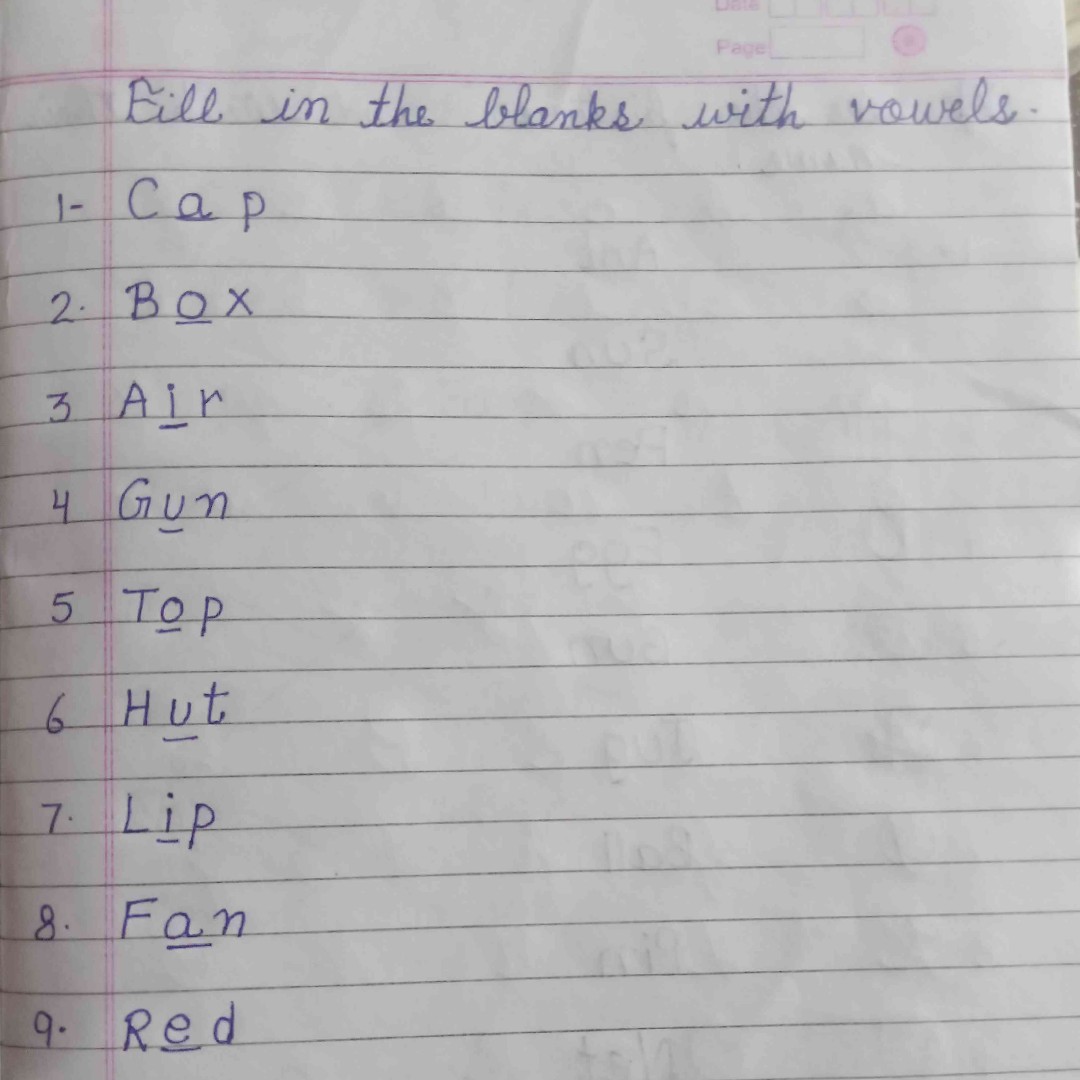 Date
Page
Fill in the blanks with vowels.
1- Cap
2. Box
3 Air
4 Gun
5 Top
6 Hut
7. Lip
8. Fan
9. Red